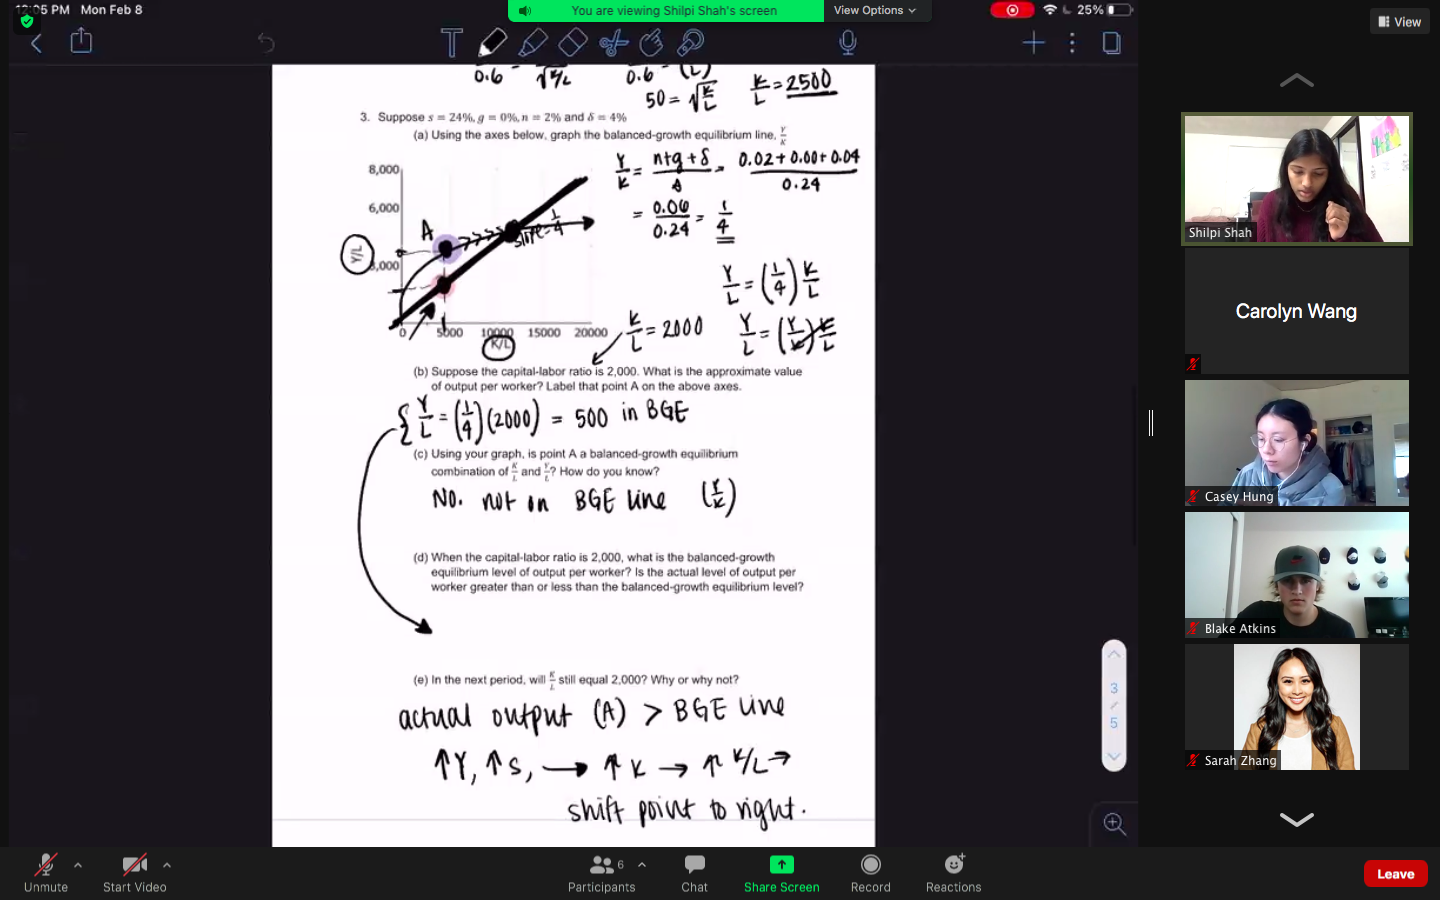 12:05 PM Mon Feb 8
You are viewing Shilpi Shah's screen
View Options
25%
View
0.6 = √K/L
0.6 (L)
50 = √K/L
K/L = 2500
3. Suppose s = 24%, g = 0%, n = 2% and δ = 4%
(a) Using the axes below, graph the balanced-growth equilibrium line, Y/K
8,000
6,000
3,000
Y/L
A
slope=1/4
0 5000 10000 15000 20000
K/L
Y/K = n+g+δ/s = 0.02+0.00+0.04/0.24
= 0.06/0.24 = 1/4
Y/L = (1/4) K/L
K/L = 2000
Y/L = (Y/K) K/L
(b) Suppose the capital-labor ratio is 2,000. What is the approximate value
of output per worker? Label that point A on the above axes.
{ Y/L = (1/4)(2000) = 500 in BGE
(c) Using your graph, is point A a balanced-growth equilibrium
combination of K/L and Y/L? How do you know?
No. not on BGE line (Y/K)
(d) When the capital-labor ratio is 2,000, what is the balanced-growth
equilibrium level of output per worker? Is the actual level of output per
worker greater than or less than the balanced-growth equilibrium level?
(e) In the next period, will K/L still equal 2,000? Why or why not?
actual output (A) > BGE line
↑Y, ↑S, → ↑K → ↑K/L →
shift point to right.
3
/
5
Shilpi Shah
Carolyn Wang
Casey Hung
Blake Atkins
Sarah Zhang
Unmute
Start Video
6
Participants
Chat
Share Screen
Record
Reactions
Leave